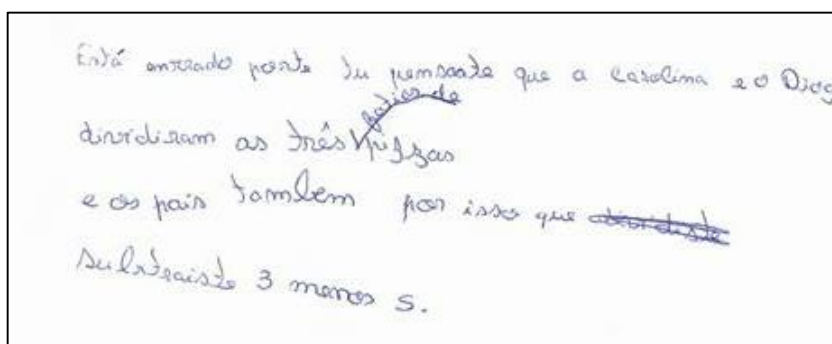 Está errado porte tu pensaste que a Carolina e o Diog
dividiram as três fatias de pizzas
e os pais tambem por isso que dividiste
subtraiste 3 menos 5.